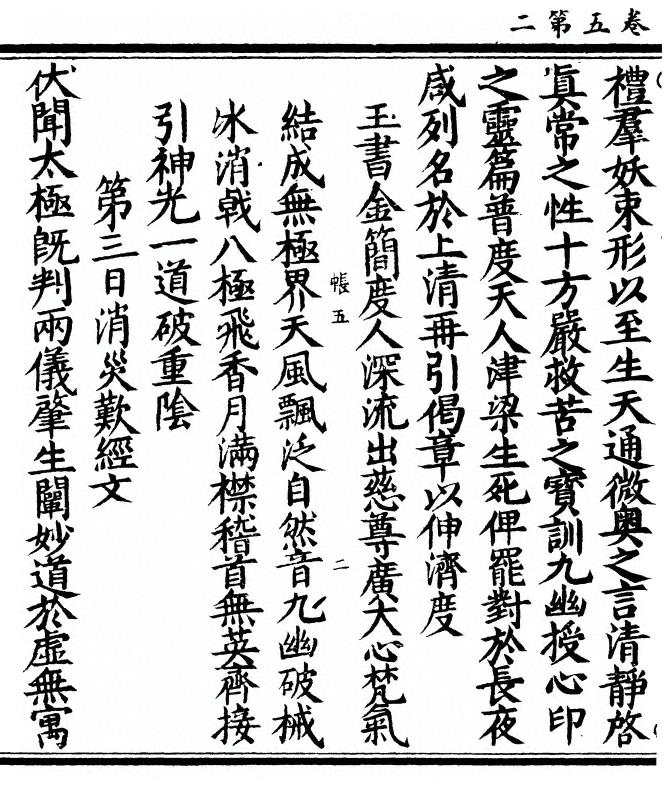 卷五第二
禮羣妖束形以至生天通微奧之言清靜啓
眞常之性十方嚴救苦之寶訓九幽授心印
之靈篇普度天人津梁生死俾罷對於長夜
咸列名於上清再引偈章以伸濟度
玉書金簡度人深流出慈尊廣大心梵氣
結成無極界天風飄泛自然音九幽破械
冰消戟八極飛香月滿襟稽首無英齊接
引神光一道破重陰
帳五
二
第三日消災歎經文
伏聞太極旣判兩儀肇生闡妙道於虛無寓